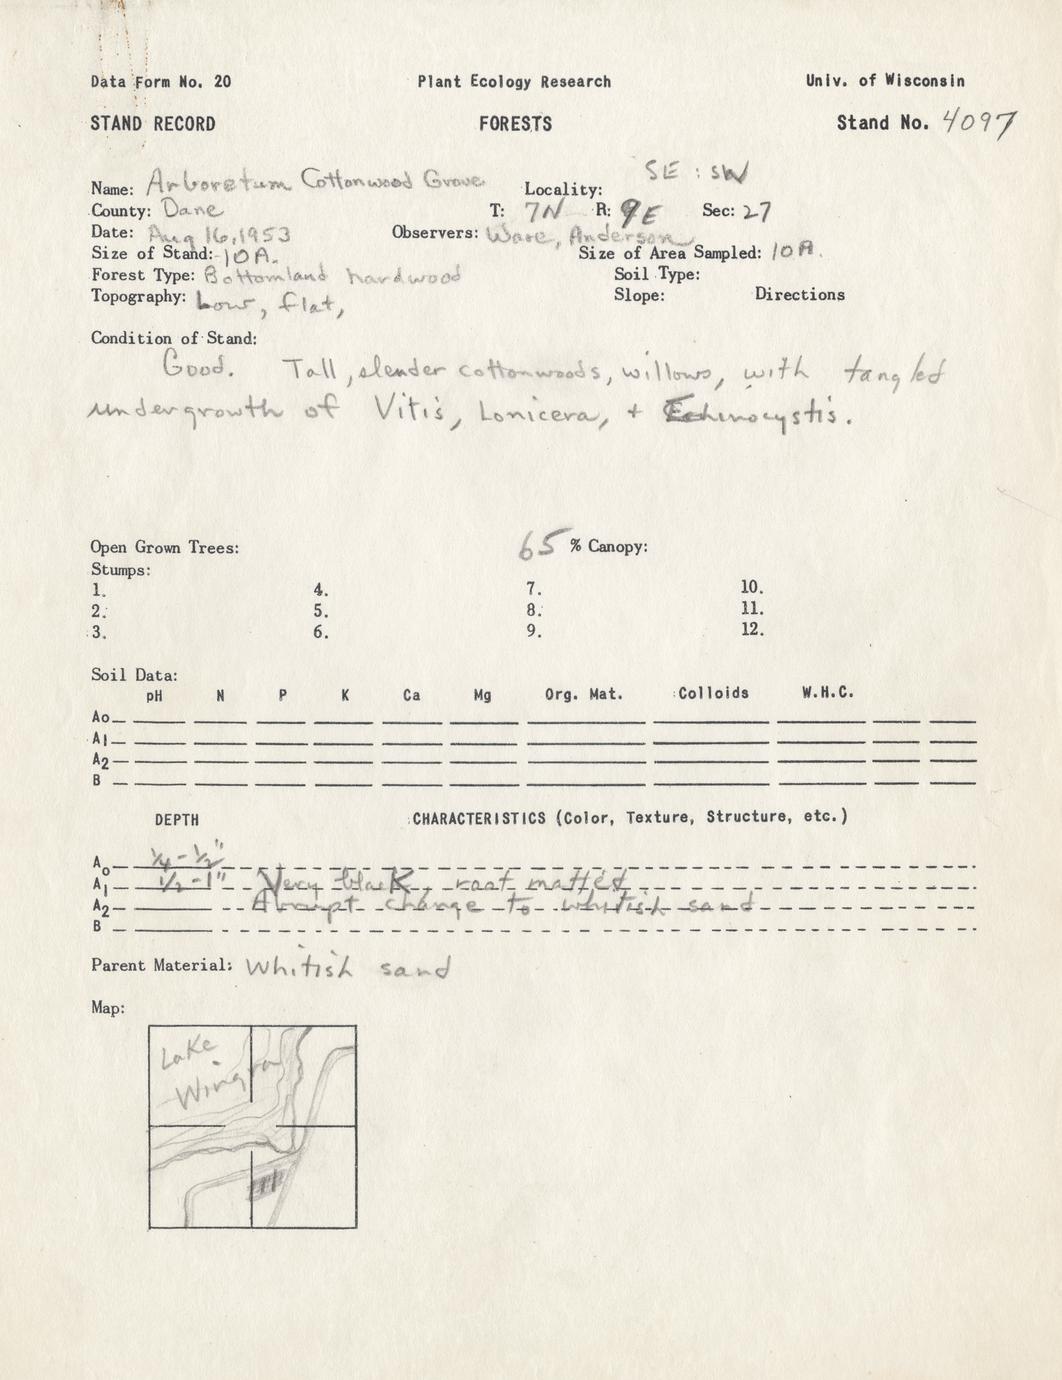 Data Form No. 20 Plant Ecology Research Univ. of Wisconsin
STAND RECORD FORESTS Stand No. 4097
SE : SW
Name: Arboretum Cottonwood Grove Locality:
County: Dane T: 7N R: 9E Sec: 27
Date: Aug 16, 1953 Observers: Ware, Anderson
Size of Stand: 10A. Size of Area Sampled: 10A.
Forest Type: Bottomland hardwood Soil Type:
Topography: Low, flat, Slope: Directions
Condition of Stand:
Good. Tall, slender cottonwoods, willows, with tangled
undergrowth of Vitis, Lonicera, + Echinocystis.
Open Grown Trees: 65 % Canopy:
Stumps:
1. 4. 7. 10.
2. 5. 8. 11.
3. 6. 9. 12.
Soil Data:
pH N P K Ca Mg Org. Mat. Colloids W.H.C.
Ao
A1
A2
B
DEPTH CHARACTERISTICS (Color, Texture, Structure, etc.)
Ao 1/4-1/2"
A1 1/2-1" Very black, root matted
A2 Abrupt change to whitish sand
B
Parent Material: Whitish sand
Map:
Lake
Wingra